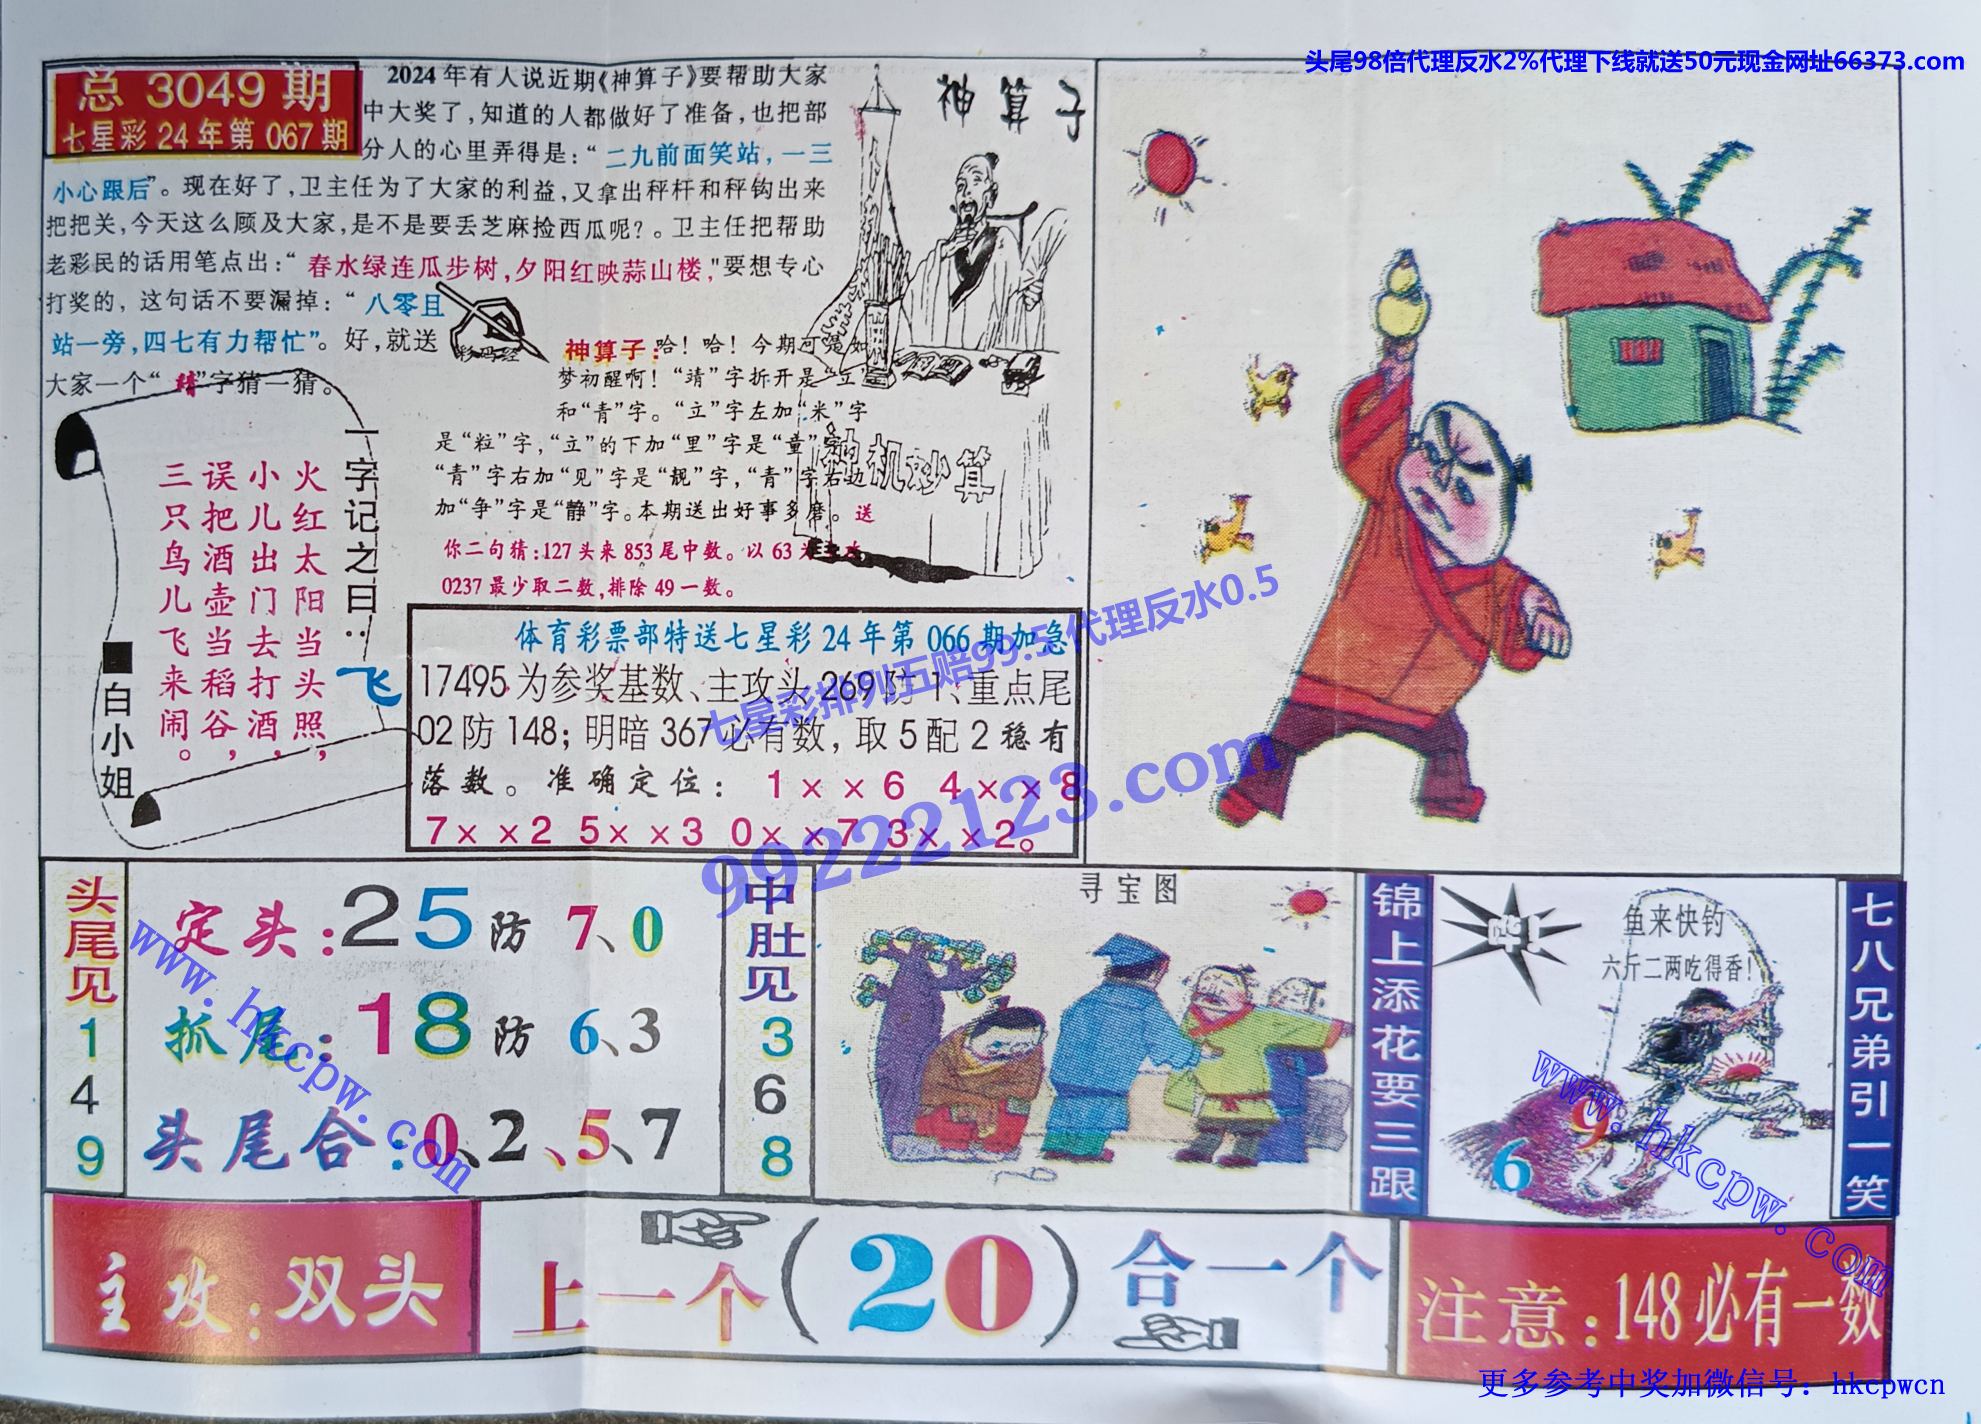 头尾98倍代理反水2%代理下线就送50元现金网址66373.com
总 3049 期
七星彩 24 年第 067 期
2024 年有人说近期《神算子》要帮助大家
中大奖了，知道的人都做好了准备，也把部
分人的心里弄得是：“二九前面笑站，一三
小心跟后”。现在好了，卫主任为了大家的利益，又拿出秤杆和秤钩出来
把把关，今天这么顾及大家，是不是要丢芝麻捡西瓜呢？。卫主任把帮助
老彩民的话用笔点出：“春水绿连瓜步树，夕阳红映蒜山楼，”要想专心
打奖的，这句话不要漏掉：“八零且
站一旁，四七有力帮忙”。好，就送
大家一个“精”字猜一猜。
神算子
彩码经
神算子：哈！哈！今期可是如
梦初醒啊！“靖”字折开是“立”
和“青”字。“立”字左加“米”字
是“粒”字，“立”的下加“里”字是“童”字，
“青”字右加“见”字是“靓”字，“青”字右边
加“争”字是“静”字。本期送出好事多磨。送
你二句猜：127头来853尾中数。以63为主攻，
0237最少取二数，排除49一数。
神机妙算
一字记之曰：飞
火红太阳当头照，
小儿出门去打酒，
误把酒壶当稻谷，
三只鸟儿飞来闹。
■白小姐
体育彩票部特送七星彩 24 年第 066 期加急
17495为参奖基数、主攻头269防1、重点尾
02防148；明暗367必有数，取5配2稳有
落数。准确定位：1××6 4××8
7××2 5××3 0××7 3××2。
七星彩排列五赔99.5代理反水0.5
99222123.com
头尾见
1
4
9
定头：25防7、0
抓尾：18防6、3
头尾合：0、2、5、7
www.hkcpw.com
中肚见
3
6
8
寻宝图
锦上添花要三跟
鱼来快钓
六斤二两吃得香！
9
6
www.hkcpw.com
七八兄弟引一笑
主攻：双头
上一个（20）合一个
注意：148必有一数
更多参考中奖加微信号：hkcpwcn